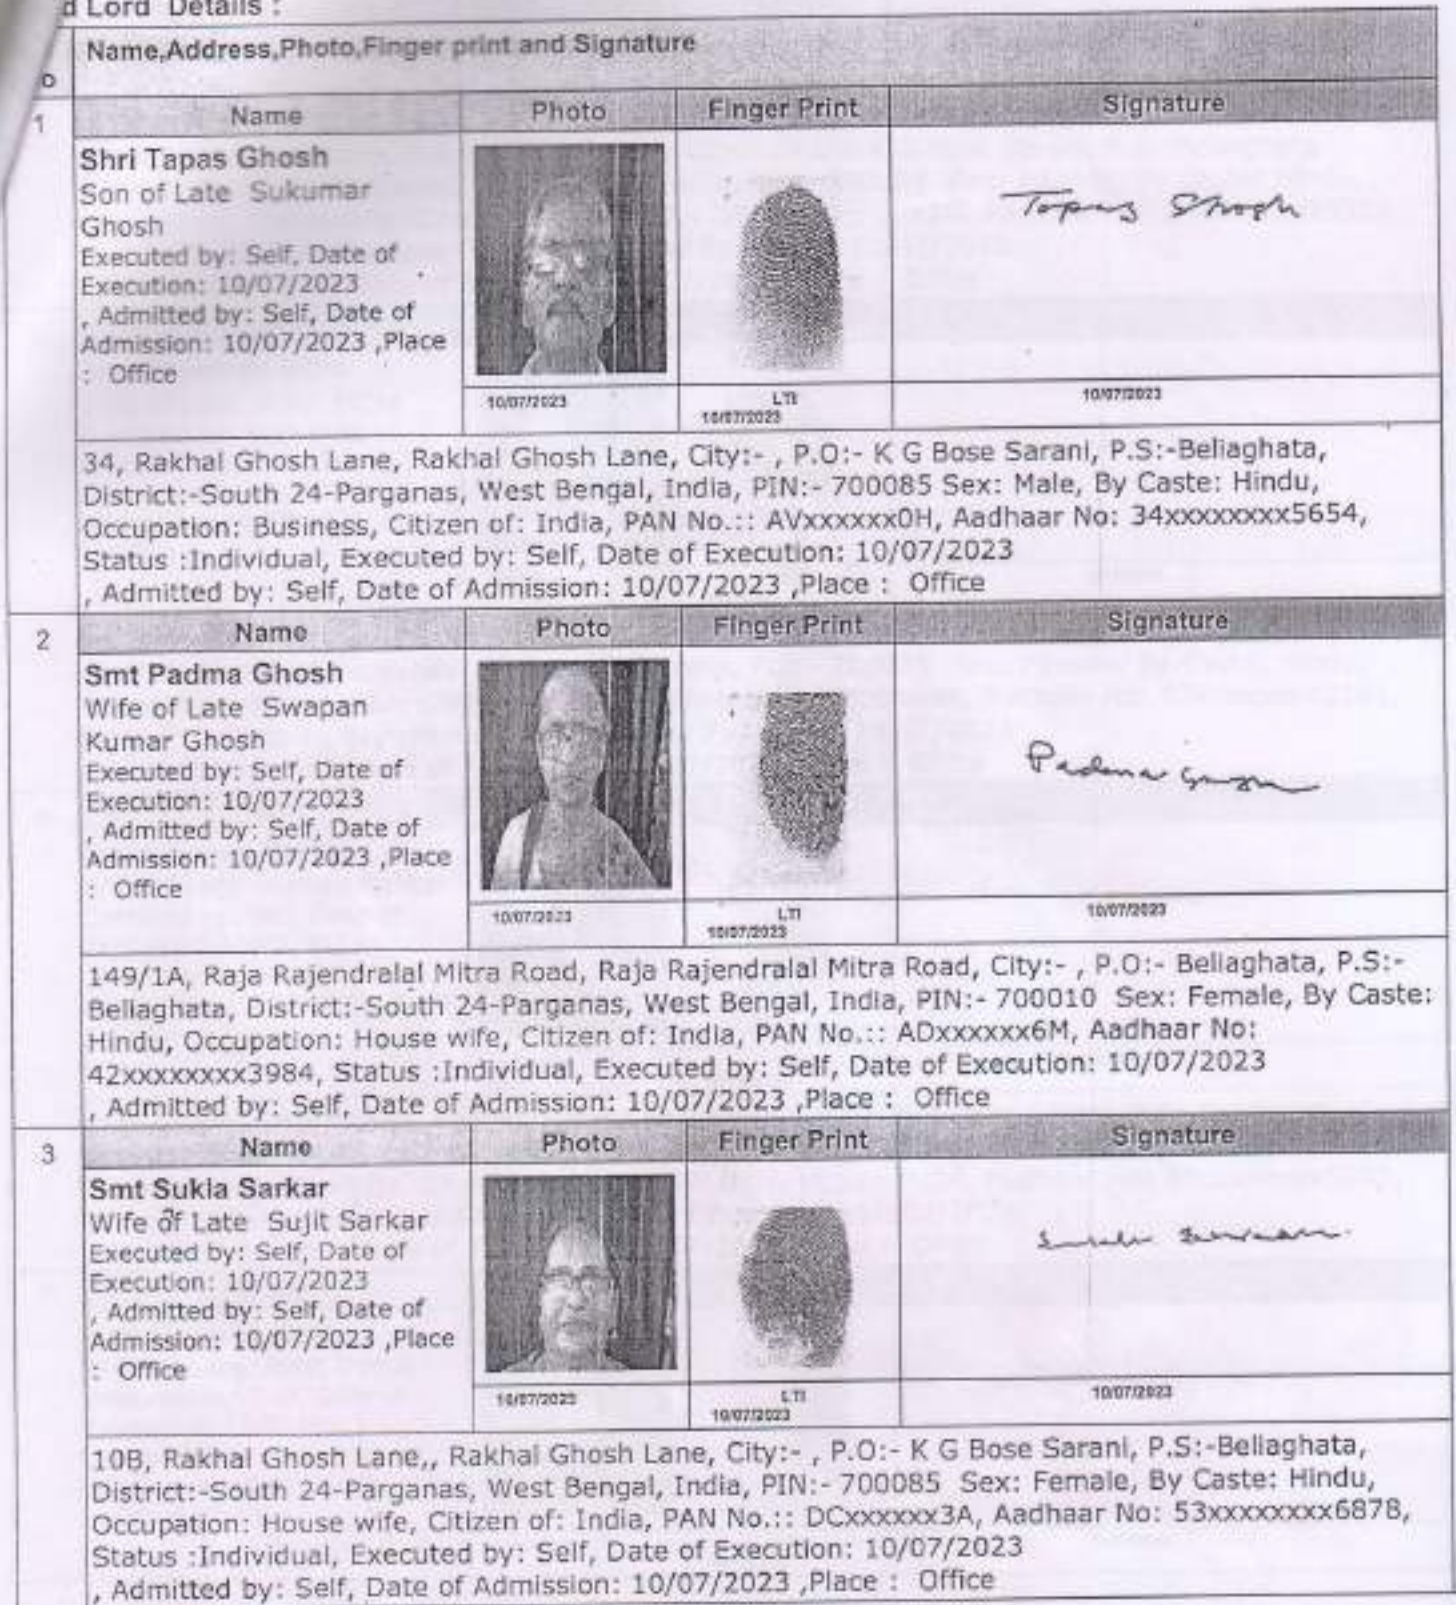 d Lord Details :
Name,Address,Photo,Finger print and Signature
o
1
Name Photo Finger Print Signature
Shri Tapas Ghosh
Son of Late Sukumar
Ghosh
Executed by: Self, Date of
Execution: 10/07/2023
, Admitted by: Self, Date of
Admission: 10/07/2023 ,Place
: Office
Tapas Ghosh
10/07/2023 LTI 10/07/2023
10/07/2023
34, Rakhal Ghosh Lane, Rakhal Ghosh Lane, City:- , P.O:- K G Bose Sarani, P.S:-Beliaghata,
District:-South 24-Parganas, West Bengal, India, PIN:- 700085 Sex: Male, By Caste: Hindu,
Occupation: Business, Citizen of: India, PAN No.:: AVxxxxxx0H, Aadhaar No: 34xxxxxxxx5654,
Status :Individual, Executed by: Self, Date of Execution: 10/07/2023
, Admitted by: Self, Date of Admission: 10/07/2023 ,Place : Office
2
Name Photo Finger Print Signature
Smt Padma Ghosh
Wife of Late Swapan
Kumar Ghosh
Executed by: Self, Date of
Execution: 10/07/2023
, Admitted by: Self, Date of
Admission: 10/07/2023 ,Place
: Office
Padma Ghosh
10/07/2023 LTI 10/07/2023
10/07/2023
149/1A, Raja Rajendralal Mitra Road, Raja Rajendralal Mitra Road, City:- , P.O:- Beliaghata, P.S:-
Beliaghata, District:-South 24-Parganas, West Bengal, India, PIN:- 700010 Sex: Female, By Caste:
Hindu, Occupation: House wife, Citizen of: India, PAN No.:: ADxxxxxx6M, Aadhaar No:
42xxxxxxxx3984, Status :Individual, Executed by: Self, Date of Execution: 10/07/2023
, Admitted by: Self, Date of Admission: 10/07/2023 ,Place : Office
3
Name Photo Finger Print Signature
Smt Sukla Sarkar
Wife of Late Sujit Sarkar
Executed by: Self, Date of
Execution: 10/07/2023
, Admitted by: Self, Date of
Admission: 10/07/2023 ,Place
: Office
10/07/2023 LTI 10/07/2023
10/07/2023
10B, Rakhal Ghosh Lane,, Rakhal Ghosh Lane, City:- , P.O:- K G Bose Sarani, P.S:-Beliaghata,
District:-South 24-Parganas, West Bengal, India, PIN:- 700085 Sex: Female, By Caste: Hindu,
Occupation: House wife, Citizen of: India, PAN No.:: DCxxxxxx3A, Aadhaar No: 53xxxxxxxx6878,
Status :Individual, Executed by: Self, Date of Execution: 10/07/2023
, Admitted by: Self, Date of Admission: 10/07/2023 ,Place : Office